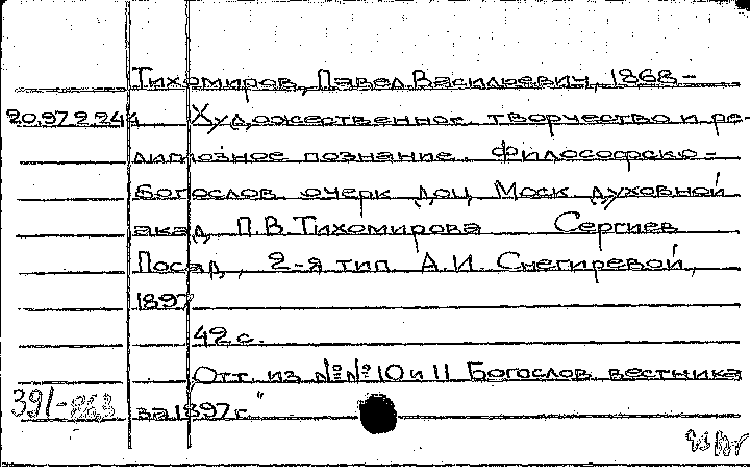 Тихомиров, Павел Васильевич, 1868-
20.972.244 Художественное творчество и ре-
лигиозное познание. Философско-
богослов. очерк доц. Моск. духовной
акад. П.В. Тихомирова Сергиев
Посад, 2-я тип. А.И. Снегиревой,
1897
42 с.
Отт. из №№ 10 и 11 Богослов. вестника
391- за 1897 г."